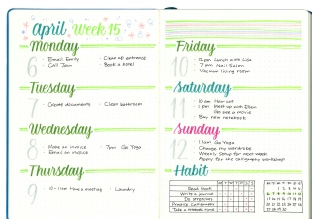 April Week 15
Monday
6
Email Emily
Call Jam
Clean up entrance
Book a hotel
Tuesday
7
documents
Clean bathroom
Wednesday
8
Make an invoice
Email an invoice
7pm Go Yoga
Thursday
9
10-11am have a meeting
Laundry
Friday
10
12pm lunch with Lisa
7pm Nail Salon
Vacuum living room
Saturday
11
10am Hair cut
1pm Meet up with Ellen
Go see a movie
Buy new notebook
Sunday
12
11am Go Yoga
Change my wardrobe
Weekly setup for next week
Apply for the calligraphy workshop
Habit
M T W T F S S
Read book
Write a journal
Do stretches
Practice calligraphy
Take a